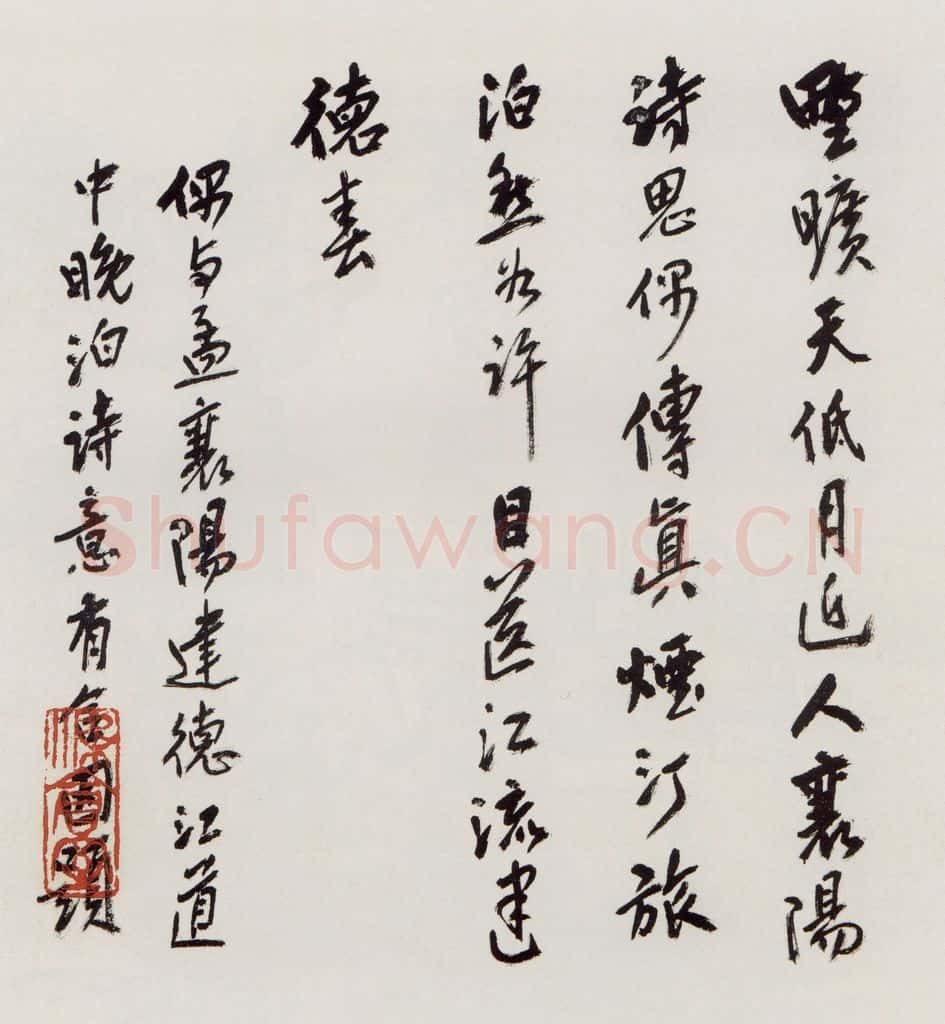 野曠天低月近人襄陽
詩思偶傳眞煙汀旅
泊愁如許目送江流建
德春
偶与孟襄陽建德江道
中晚泊詩意有會因題
Shufawang.CN